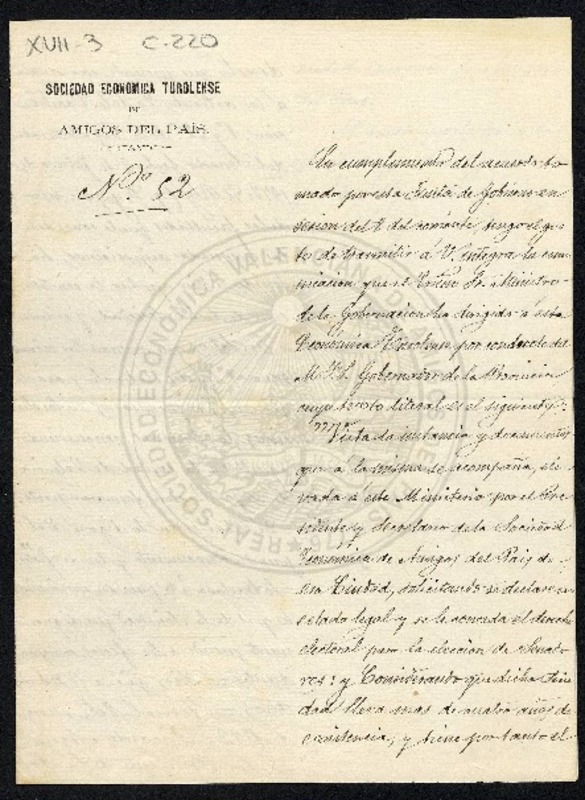 XVII-3 C-220
SOCIEDAD ECONOMICA TUROLENSE
DE
AMIGOS DEL PAIS.
Nº 52
En cumplimiento del acuerdo to-
mado por esta Junta de Gobierno en
sesion del 8 del corriente tengo el gus-
to de trasmitir á V. integra la comu-
nicacion que el Exmo Sr. Ministro
de la Gobernacion ha dirigido á esta
Económica Turolense por conducto del
M. I. S. Gobernador de la Provincia
cuyo texto literal es el siguiente:
Vista la instancia y documentos
que a la misma se acompaña, ele-
vada á este Ministerio por el Pre-
sidente y Secretario de la Sociedad
Económica de Amigos del Pais de
esa Ciudad, solicitando se declare su
estado legal y se le conceda el derecho
electoral para la eleccion de Senado-
res: y Considerando que dicha Socie-
dad lleva mas de cuatro años de
existencia, y tiene por tanto el
REAL SOCIEDAD ECONOMICA VALENCIANA DE